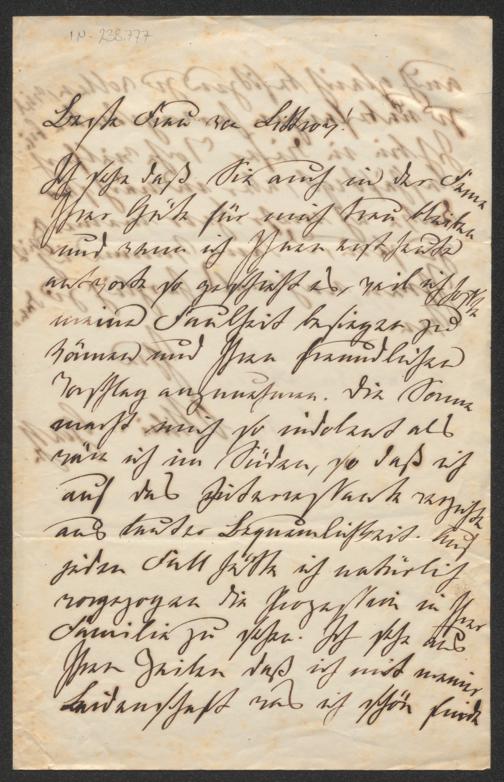 IN-238.777
Beste Frau von Littrow!
Ich sehe daß Sie auch in der Ferne
Ihrer Güte für mich treu bleiben
und wenn ich Ihnen erst heute
antworte so geschieht es, weil ich hoffte
meine Faulheit besiegen zu
können und Ihren freundlichen
Vorschlag anzunehmen. Die Sonne
macht mich so indolent als
wäre ich im Süden, so daß ich
auf das Interessante verzichte
aus lauter Bequemlichkeit. Auf
jeden Fall hätte ich natürlich
vorgezogen die Prozession in Ihrer
Familie zu sehen. Ich sehe aus
Ihren Zeilen daß ich mit meiner
Leidenschaft was ich schön finde